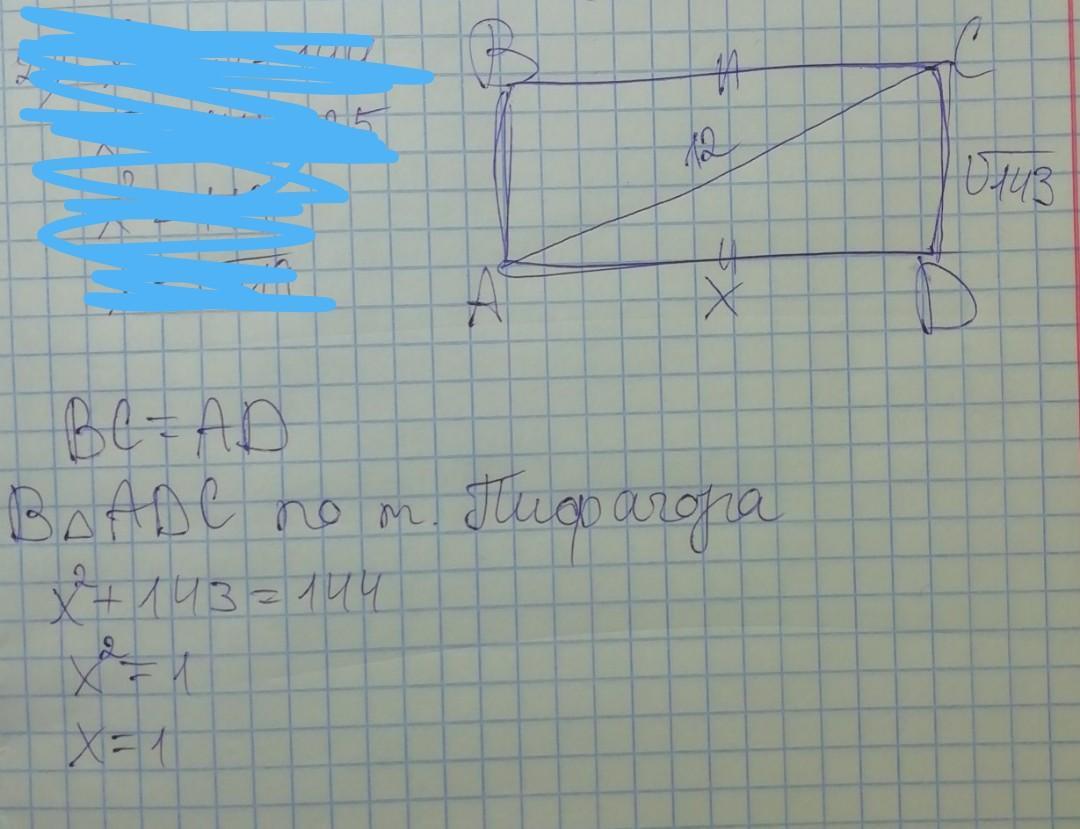 B C
12
√143
A X D
BC = AD
В △ADC по т. Пифрагора
x² + 143 = 144
x² = 1
x = 1